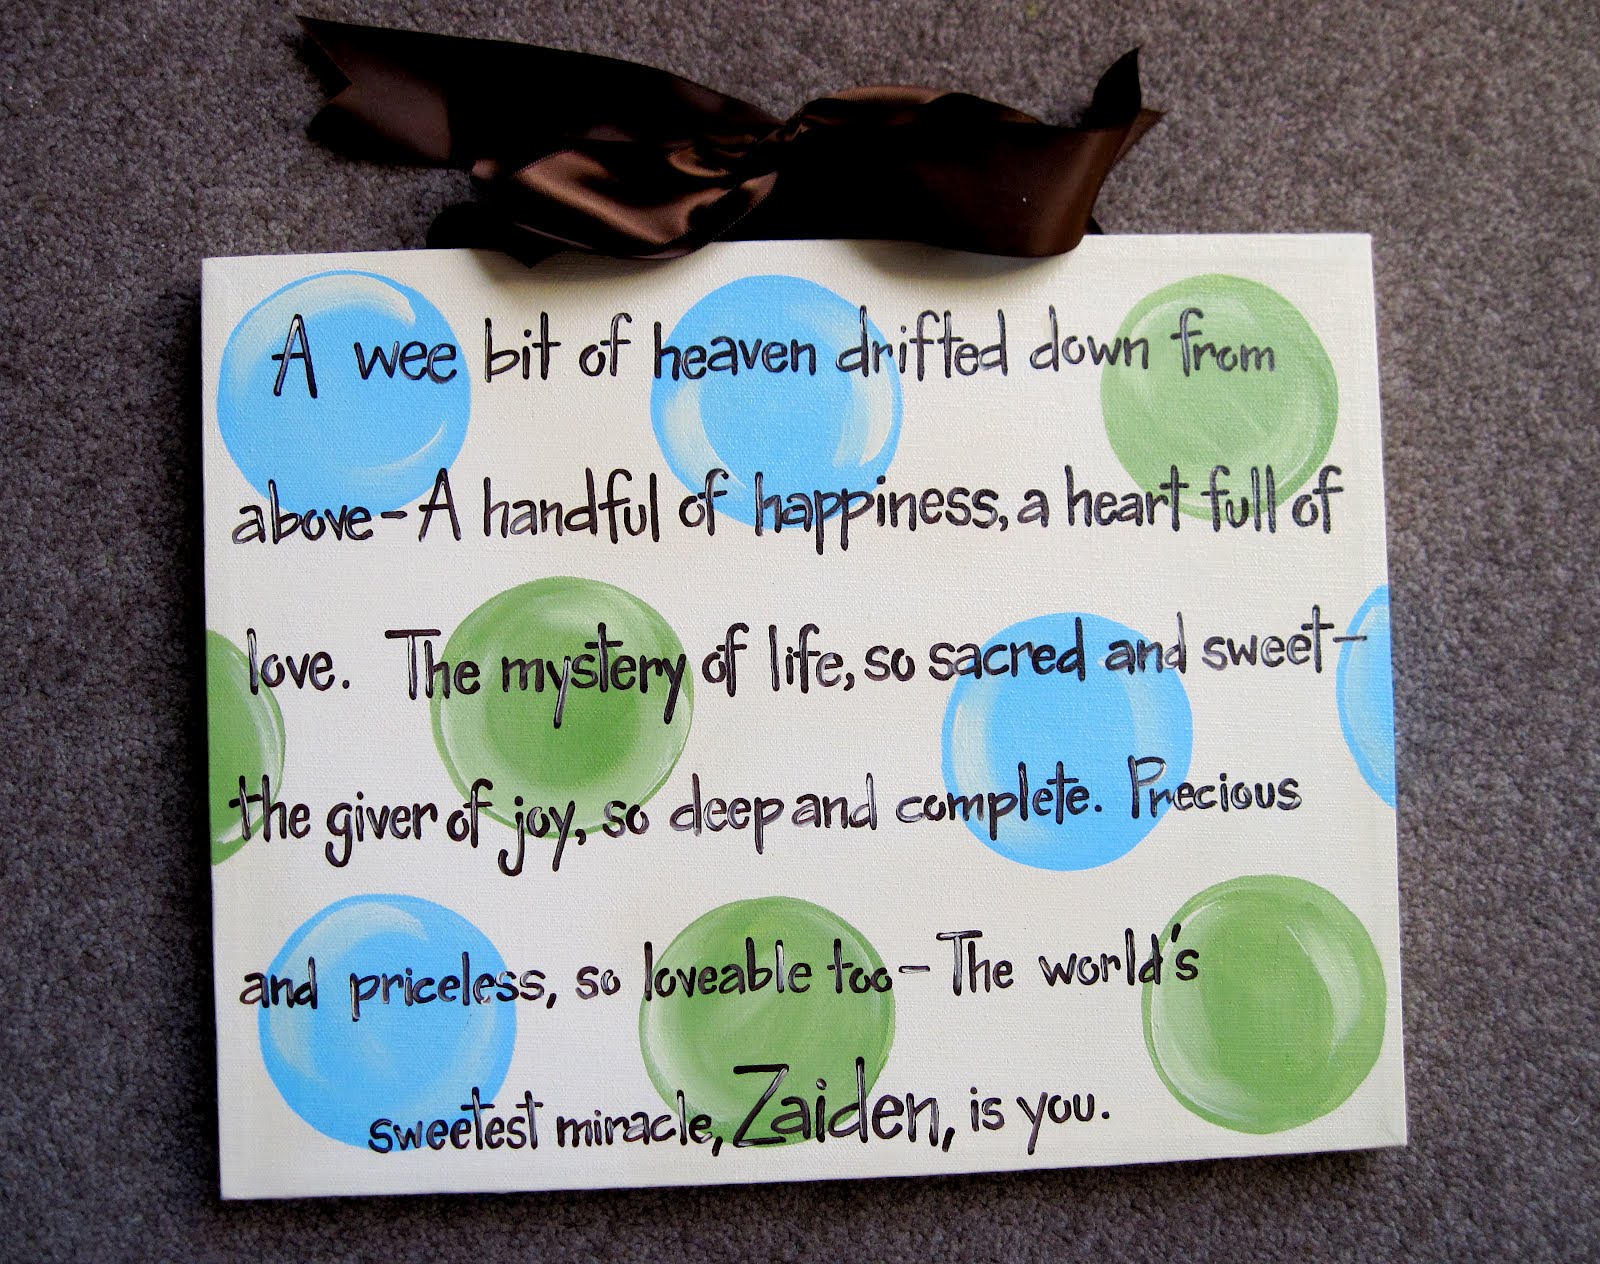 A wee bit of heaven drifted down from
above-A handful of happiness, a heart full of
love. The mystery of life, so sacred and sweet-
the giver of joy, so deep and complete. Precious
and priceless, so loveable too-The world's
sweetest miracle, Zaiden, is you.